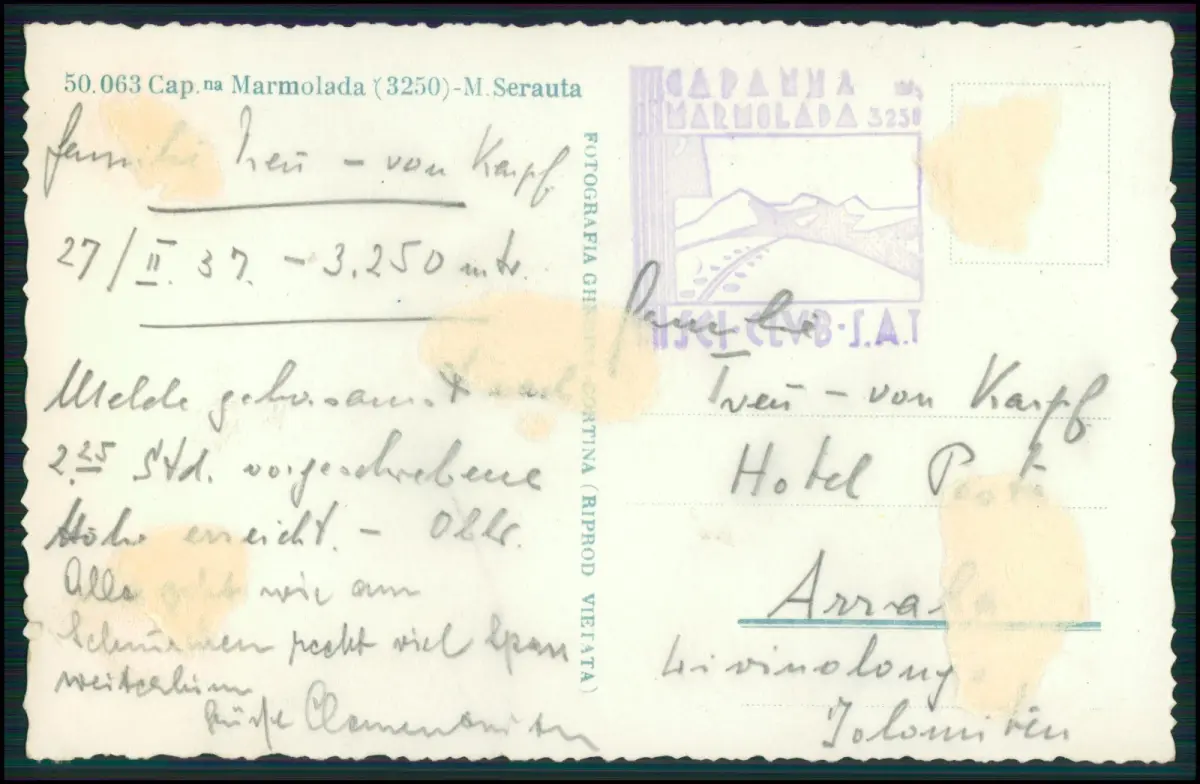 50.063 Cap.na Marmolada (3250)-M. Serauta
Familie Treu - von Kapf
27/II. 37. - 3.250 mtr.
Melde gehorsamst nach
2.25 Std. vorgeschriebene
Höhe erreicht. -
Alles geht wie am
Schnürchen viel Spass
weiterhin
FOTOGRAFIA CORTINA (RIPROD VIETATA)
CAPANNA M.
MARMOLADA 3250
SCI·CLVB·S.A.T
Familie
Treu - von Kapf
Hotel Posta
Livinalongo
Dolomiten